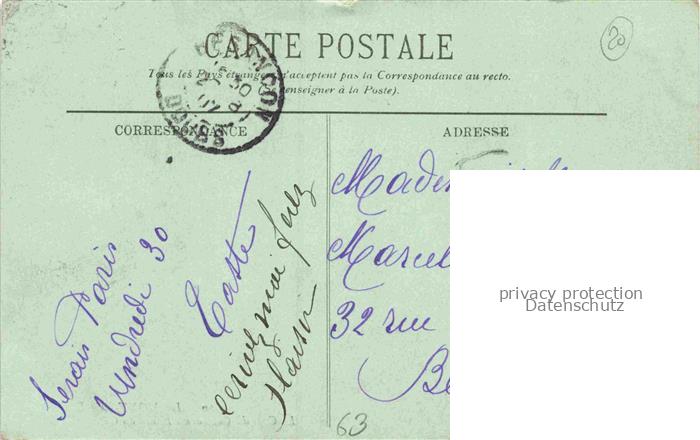 CARTE POSTALE
Tous les Pays étrangers n'acceptent pas la Correspondance au recto.
(Se renseigner à la Poste).
CORRESPONDANCE
ADRESSE
BESANÇON
DOUBS
20
Serais Paris
Vendredi 30
ecrivez moi ferez
plaisir
Made
Marcel
32 rue
Be
63
privacy protection
Datenschutz